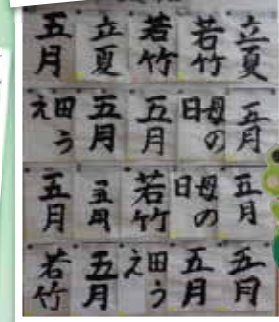 立夏
若竹
若竹
立夏
五月
五月
母の日
五月
五月
田うえ
五月
母の日
若竹
五月
五月
五月
五月
田うえ
五月
若竹